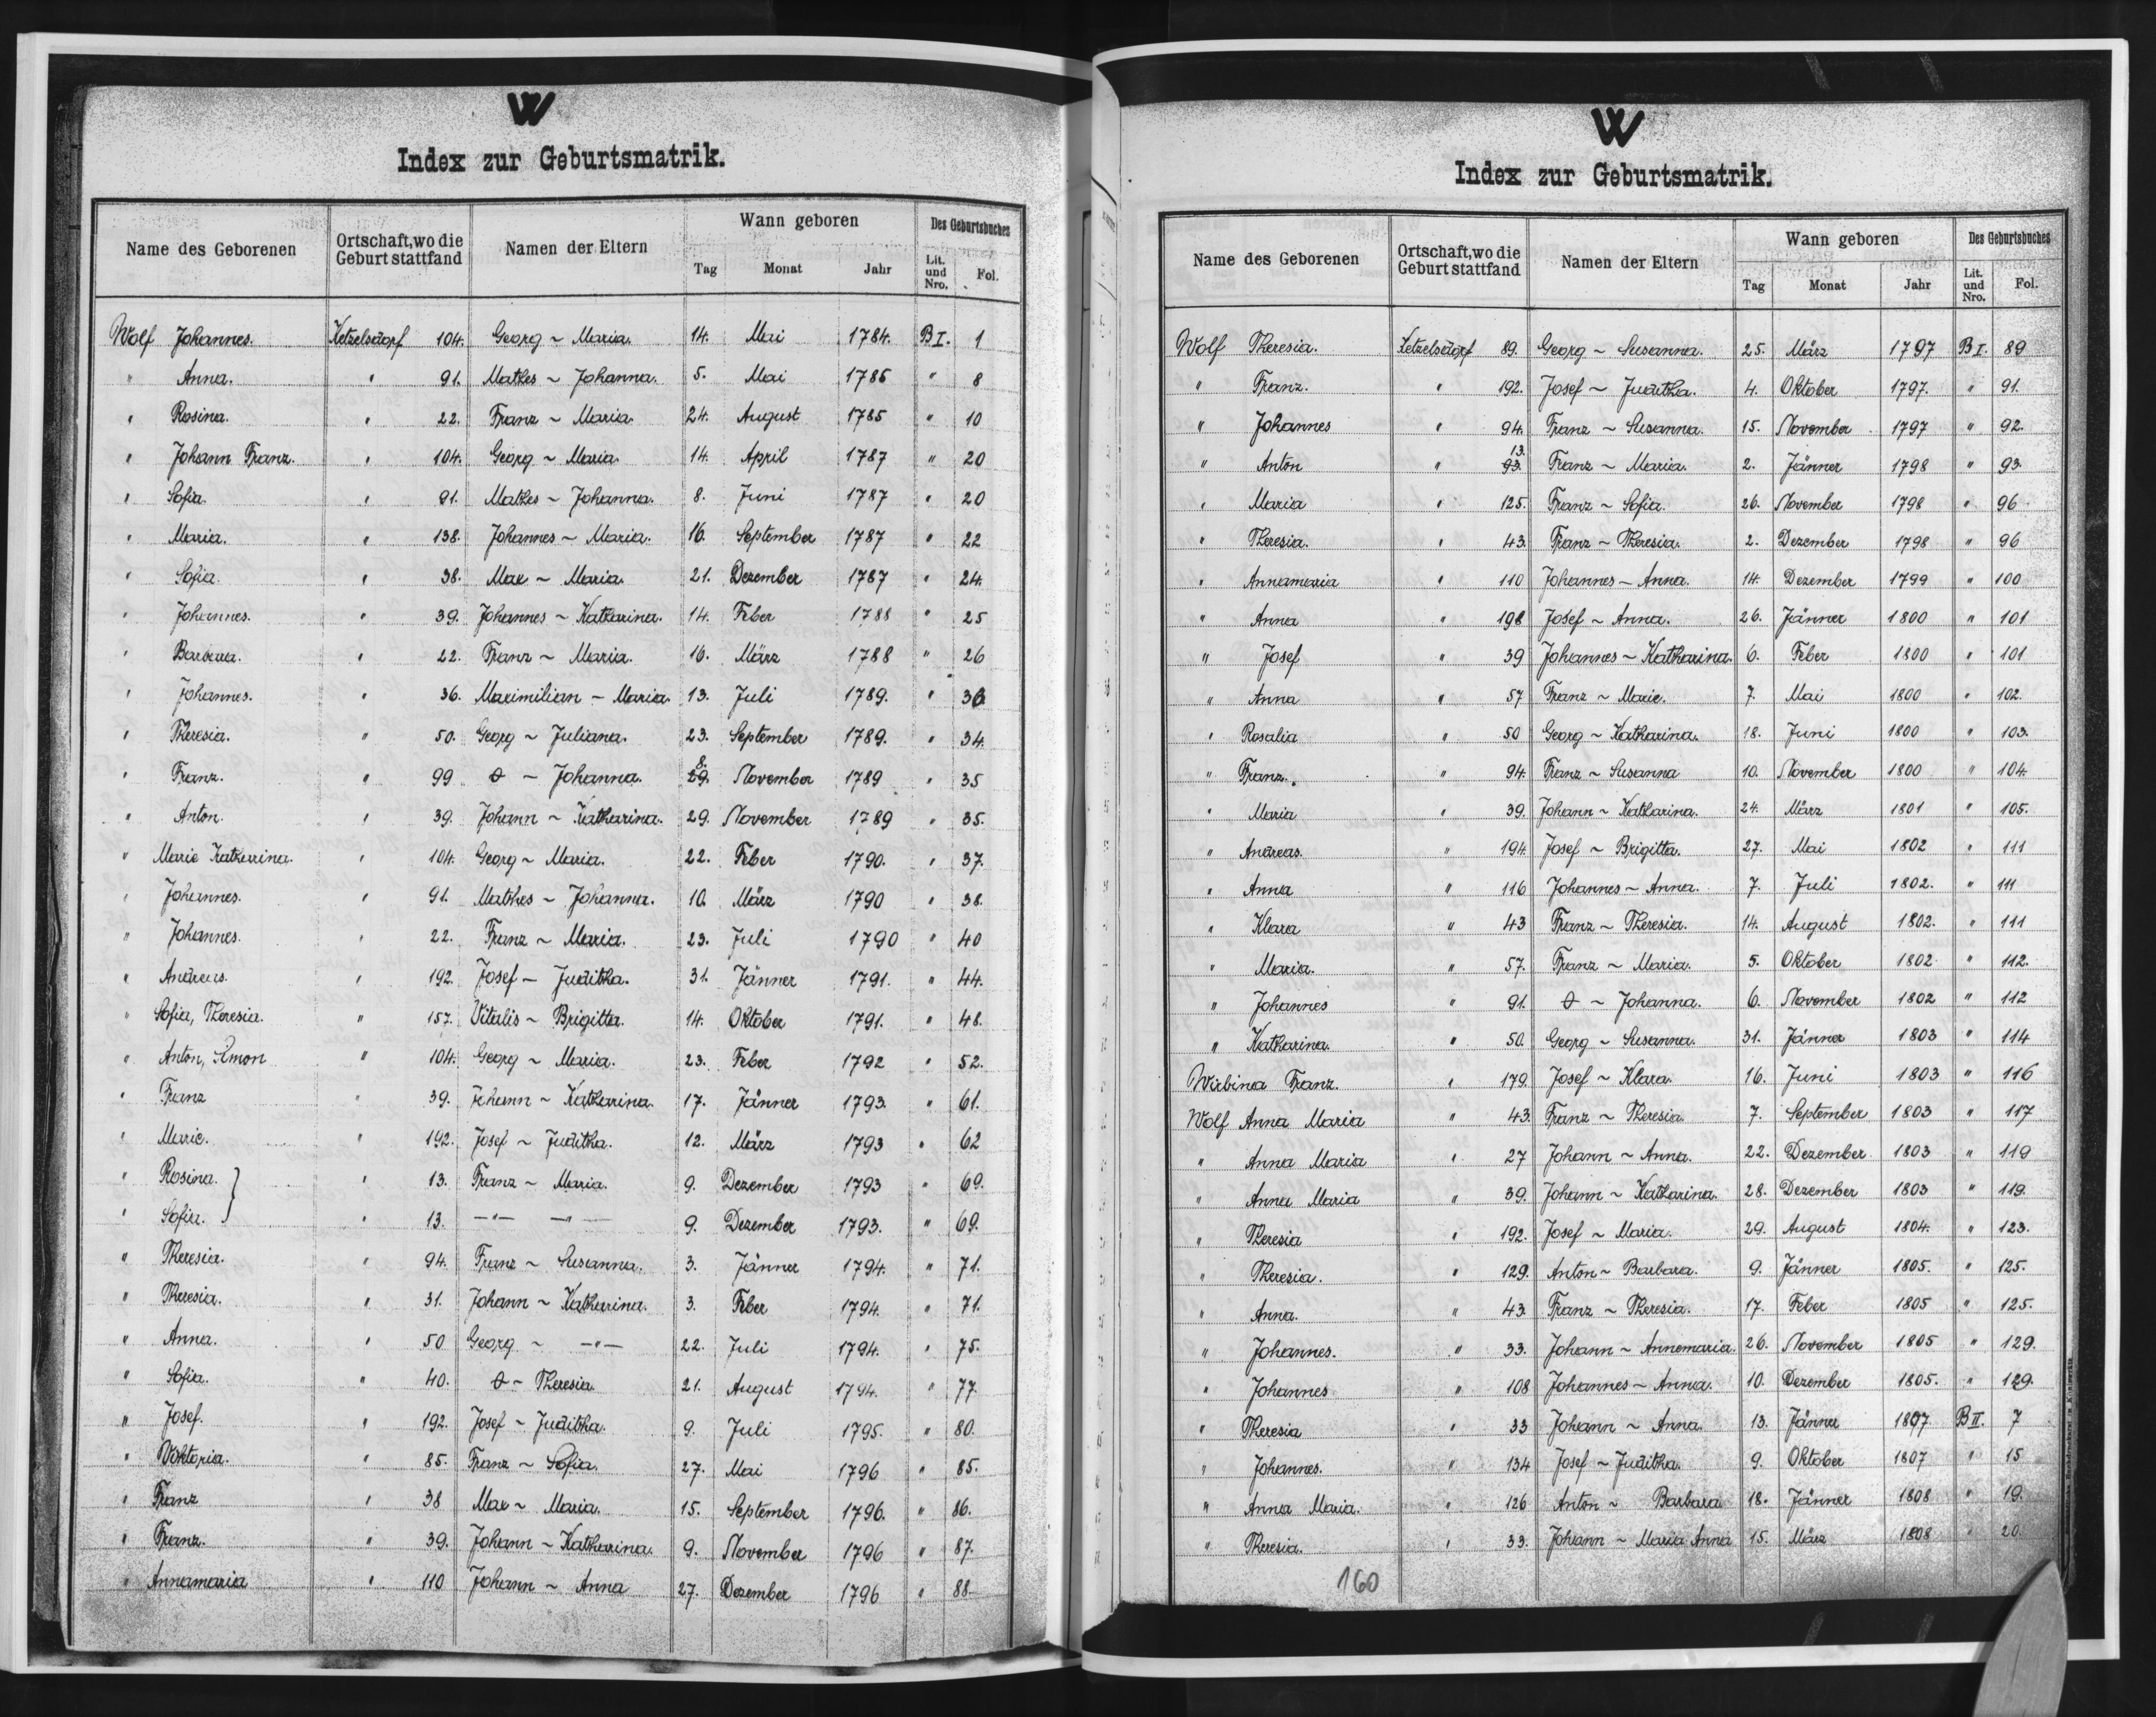 W
Index zur Geburtsmatrik.
Name des Geborenen | Ortschaft, wo die Geburt stattfand | Namen der Eltern | Wann geboren: Tag | Monat | Jahr | Des Geburtsbuches: Lit. und Nro. | Fol.
Wolf Johannes. Ketzelsdorf 104. Georg ~ Maria. 14. Mai 1784. B I. 1
" Anna. " 91. Mathes ~ Johanna. 5. Mai 1785 " 8
" Rosina. " 22. Franz ~ Maria. 24. August 1785 " 10
" Johann Franz. " 104. Georg ~ Maria. 14. April 1787 " 20
" Sofia. " 91. Mathes ~ Johanna. 8. Juni 1787 " 20
" Maria. " 138. Johannes ~ Maria. 16. September 1787 " 22
" Sofia. " 38. Max ~ Maria. 21. Dezember 1787 " 24.
" Johannes. " 39. Johannes ~ Katharina. 14. Feber 1788 " 25
" Barbara. " 22. Franz ~ Maria. 16. März 1788 " 26
" Johannes. " 36. Maximilian ~ Maria. 13. Juli 1789. "
" Theresia. " 50. Georg ~ Juliana. 23. September 1789. " 34.
" Franz. " 99 ~ Johanna. 8. November 1789 " 35
" Anton. " 39. Johann ~ Katharina. 29. November 1789 " 35.
" Marie Katharina. " 104. Georg ~ Maria. 22. Feber 1790. " 37.
" Johannes. " 91. Mathes ~ Johanna. 10. März 1790 " 38.
" Johannes. " 22. Franz ~ Maria. 23. Juli 1790 " 40
" Andreas. " 192. Josef ~ Juditha. 31. Jänner 1791. " 44.
" Sofia, Theresia. " 157. Vitalis ~ Brigitta. 14. Oktober 1791. " 48.
" Anton, Simon " 104. Georg ~ Maria. 23. Feber 1792 " 52.
" Franz " 39. Johann ~ Katharina. 17. Jänner 1793. " 61.
" Marie. " 192. Josef ~ Juditha. 12. März 1793 " 62
" Rosina. } " 13. Franz ~ Maria. 9. Dezember 1793 " 69.
" Sofia. } " 13. —"— —"— 9. Dezember 1793. " 69.
" Theresia. " 94. Franz ~ Susanna. 3. Jänner 1794. " 71.
" Theresia. " 31. Johann ~ Katharina. 3. Feber 1794. " 71.
" Anna. " 50 Georg ~ —"— 22. Juli 1794. " 75.
" Sofia. " 40. ~ Theresia 21. August 1794. " 77.
" Josef. " 192. Josef ~ Juditha. 9. Juli 1795. " 80.
" Viktoria. " 85. Franz ~ Sofia. 27. Mai 1796 " 85.
" Franz " 38 Max ~ Maria. 15. September 1796. " 86.
" Franz. " 39. Johann ~ Katharina. 9. November 1796 " 87.
" Annamaria " 110 Johann ~ Anna 27. Dezember 1796 " 88
W
Index zur Geburtsmatrik.
Name des Geborenen | Ortschaft, wo die Geburt stattfand | Namen der Eltern | Wann geboren: Tag | Monat | Jahr | Des Geburtsbuches: Lit. und Nro. | Fol.
Wolf Theresia. Ketzelsdorf 89. Georg ~ Susanna. 25. März 1797 B I. 89
" Franz. " 192. Josef ~ Juditha. 4. Oktober 1797. " 91.
" Johannes " 94. Franz ~ Susanna. 15. November 1797 " 92.
" Anton " 13. 93. Franz ~ Maria. 2. Jänner 1798 " 93.
" Maria " 125. Franz ~ Sofia. 26. November 1798 " 96
" Theresia. " 43. Franz ~ Theresia. 2. Dezember 1798 " 96
" Annamaria " 110 Johannes ~ Anna. 14. Dezember 1799 " 100
" Anna " 198 Josef ~ Anna. 26. Jänner 1800 " 101
" Josef " 39 Johannes ~ Katharina. 6. Feber 1800 " 101
" Anna " 57 Franz ~ Marie. 7. Mai 1800 " 102.
" Rosalia " 50 Georg ~ Katharina. 18. Juni 1800 " 103.
" Franz. " 94. Franz ~ Susanna 10. November 1800 " 104.
" Maria " 39. Johann ~ Katharina. 24. März 1801 " 105.
" Andreas. " 194. Josef ~ Brigitta. 27. Mai 1802 " 111
" Anna " 116 Johannes ~ Anna. 7. Juli 1802. " 111
" Klara " 43 Franz ~ Theresia. 14. August 1802. " 111
" Maria. " 57. Franz ~ Maria. 5. Oktober 1802 " 112.
" Johannes " 91. ~ Johanna. 6. November 1802 " 112
" Katharina. " 50. Georg ~ Susanna. 31. Jänner 1803 " 114
Wirbina Franz. " 179. Josef ~ Klara. 16. Juni 1803 " 116
Wolf Anna Maria " 43. Franz ~ Theresia. 7. September 1803 " 117
" Anna Maria " 27 Johann ~ Anna. 22. Dezember 1803 " 119
" Anna Maria " 39. Johann ~ Katharina. 28. Dezember 1803 " 119.
" Theresia " 192. Josef ~ Maria. 29. August 1804. " 123.
" Theresia. " 129. Anton ~ Barbara. 9. Jänner 1805. " 125.
" Anna. " 43. Franz ~ Theresia. 17. Feber 1805 " 125.
" Johannes. " 33. Johann ~ Annemaria. 26. November 1805 " 129.
" Johannes " 108 Johannes ~ Anna. 10. Dezember 1805. " 129.
" Theresia " 33 Johann ~ Anna. 13. Jänner 1807 B II. 7
" Johannes. " 134 Josef ~ Juditha. 9. Oktober 1807 " 15
" Anna Maria. " 126 Anton ~ Barbara 18. Jänner 1808 " 19.
" Theresia. " 33. Johann ~ Maria Anna 15. März 1808 " 20.
160